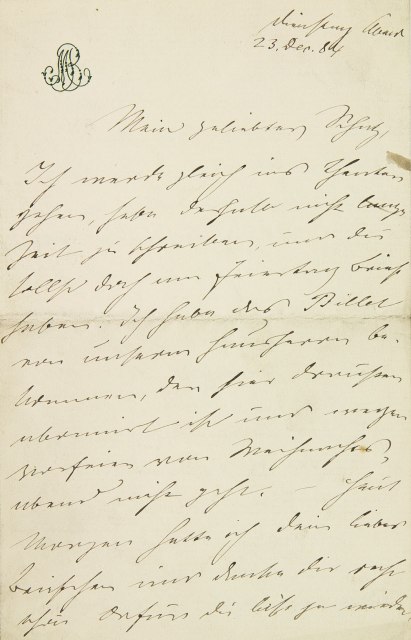 Dienstag Abend
23. Dec. 84
Mein geliebter Schatz,
Ich werde gleich ins Theater
gehen, habe deshalb nicht lange
Zeit zu schreiben, und du
sollst doch am Feiertag Briefe
haben. Ich habe das Billet
von unserm Hausherrn be-
kommen, der hier draußen
abonnirt ist und wegen
Vorfeier von Weihnachts-
abend nicht geht. – Heut
Morgen hatte ich dein liebes
Briefchen und danke dir recht
schön dafür